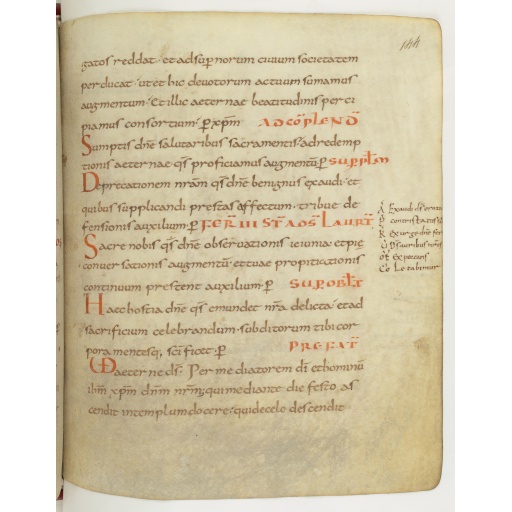 144
gatos reddat · et ad sup̄nornum ciuium societatem
perducat · ut et hic deuotorum actuum sumamus
augmentum · Et illic aeternae beatitudinis perci
piamus consortium · ꝑ xp̄m AD CŌPLEND̄
Sumptis dn̄e salutaribus sacramentis · ad redemp
tionis aeternae qs̄ proficiamus augmentū · ꝑ SUP PLM̄
Deprecationem nr̄am qs̄ dn̄e benignus exaudi · et
quibus supplicandi prestas affectum · tribue de
fensionis auxilium · ꝑ FER̄ III ST̄A OS̄ LAURT̄
Sacre nobis qs̄ dn̄e obseruationis ieiunia · et pię
conuersationis augmentū · et tuae propitiationis
continuum prestent auxilium · ꝑ SUP OBLT̄
Haec hostia dn̄e qs̄ emundet nr̄a delicta · et ad
sacrificium celebrandum · subditorum tibi cor
pora mentesq; sc̄ificet · ꝑ PREFAT̄
aeterne ds̄ · Per mediatorem dī et hominū
ihm̄ xp̄m dn̄m nr̄m; qui mediante die festo as
cendit in templum docere · qui de celo descendit
A Exaudi ds̄ oratio
contristatus
R exurge dn̄e
Co Letabimur